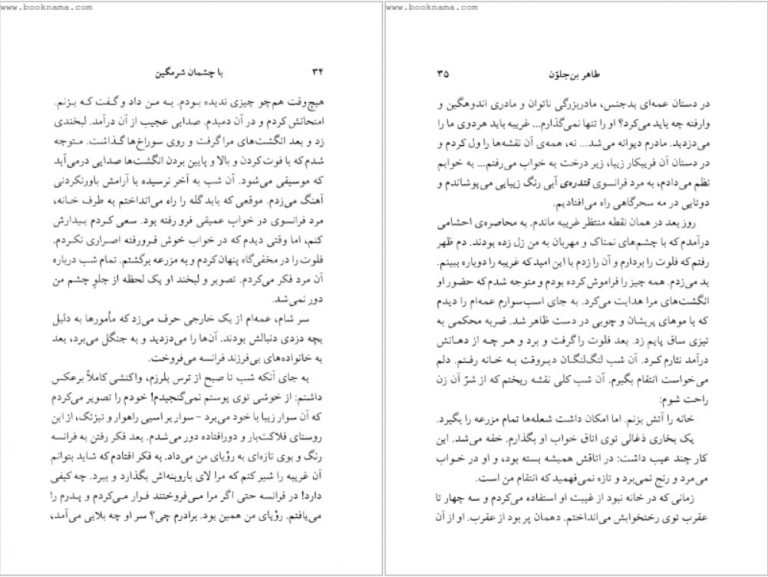 www.booknama.com
۳۴ با چشمان شرمگین
هیچ‌وقت هم‌چو چیزی ندیده بودم. به من داد و گفت که بزنم.
امتحانش کردم و در آن دمیدم. صدایی عجیب از آن درآمد. لبخندی
زد و بعد انگشت‌های مرا گرفت و روی سوراخ‌ها گذاشت. متوجه
شدم که با فوت کردن و بالا و پایین بردن انگشت‌ها صدایی درمی‌آید
که موسیقی می‌شود. آن شب به آخر نرسیده با آرامش باورنکردنی
آهنگ می‌زدم. موقعی که باید گله را راه می‌انداختم به طرف خانه،
مرد فرانسوی در خواب عمیقی فرو رفته بود. سعی کردم بیدارش
کنم، اما وقتی دیدم که در خواب خوش فرورفته اصراری نکردم.
فلوت را در مخفی‌گاه پنهان کردم و به مزرعه برگشتم. تمام شب درباره
آن مرد فکر می‌کردم. تصویر و لبخند او یک لحظه از جلوِ چشم من
دور نمی‌شد.
سر شام، عمه‌ام از یک خارجی حرف می‌زد که مأمورها به دلیل
بچه دزدی دنبالش بودند. آن‌ها را می‌دزدید و به جنگل می‌برد، بعد
به خانواده‌های بی‌فرزند فرانسه می‌فروخت.
به جای آنکه شب تا صبح از ترس بلرزم، واکنشی کاملاً برعکس
داشتم: از خوشی توی پوستم نمی‌گنجیدم! خودم را تصویر می‌کردم
که آن سوار زیبا با خود می‌برد – سوار بر اسبی راهوار و تیزتک، از این
روستای فلاکت‌بار و دورافتاده دور می‌شدم. بعد فکر رفتن به فرانسه
رنگ و بوی تازه‌ای به رؤیای من می‌داد. به فکر افتادم که شاید بتوانم
آن غریبه را شیر کنم که مرا لای باروبنه‌اش بگذارد و ببرد. چه کیفی
دارد! در فرانسه حتی اگر مرا می‌فروختند فرار می‌کردم و پدرم را
می‌یافتم. رؤیای من همین بود. برادرم چی؟ سر او چه بلایی می‌آمد،
www.booknama.com
طاهر بن‌جلوّن ۳۵
در دستان عمه‌ای بدجنس، مادربزرگی ناتوان و مادری اندوهگین و
وارفته چه باید می‌کرد؟ او را تنها نمی‌گذارم... غریبه باید هردوی ما را
می‌دزدید. مادرم دیوانه می‌شد... نه، همه‌ی آن نقشه‌ها را ول کردم و
در دستان آن فریبکار زیبا، زیر درخت به خواب می‌رفتم... به خوابم
نظم می‌دادم، به مرد فرانسوی قندره‌ی آبی رنگ زیبایی می‌پوشاندم و
دوتایی در مه سحرگاهی راه می‌افتادیم.
روز بعد در همان نقطه منتظر غریبه ماندم. به محاصره‌ی احشامی
درآمدم که با چشم‌های نمناک و مهربان به من زل زده بودند. دم ظهر
رفتم که فلوت را بردارم و آن را زدم با این امید که غریبه را دوباره ببینم.
بد می‌زدم. همه چیز را فراموش کرده بودم و متوجه شدم که حضور او
انگشت‌های مرا هدایت می‌کرد. به جای اسب‌سوارم عمه‌ام را دیدم
که با موهای پریشان و چوبی در دست ظاهر شد. ضربه محکمی به
تیزی ساق پایم زد. بعد فلوت را گرفت و برد و هر چه از دهانش
درآمد نثارم کرد. آن شب لنگ‌لنگان دیروقت به خانه رفتم. دلم
می‌خواست انتقام بگیرم. آن شب کلی نقشه ریختم که از شرّ آن زن
راحت شوم:
خانه را آتش بزنم. اما امکان داشت شعله‌ها تمام مزرعه را بگیرد.
یک بخاری ذغالی توی اتاق خواب او بگذارم. خفه می‌شد. این
کار چند عیب داشت: در اتاقش همیشه بسته بود، و او در خواب
می‌مرد و رنج نمی‌برد و تازه نمی‌فهمید که انتقام من است.
زمانی که در خانه نبود از غیبت او استفاده می‌کردم و سه چهار تا
عقرب توی رختخوابش می‌انداختم. دهمان پر بود از عقرب. او از آن